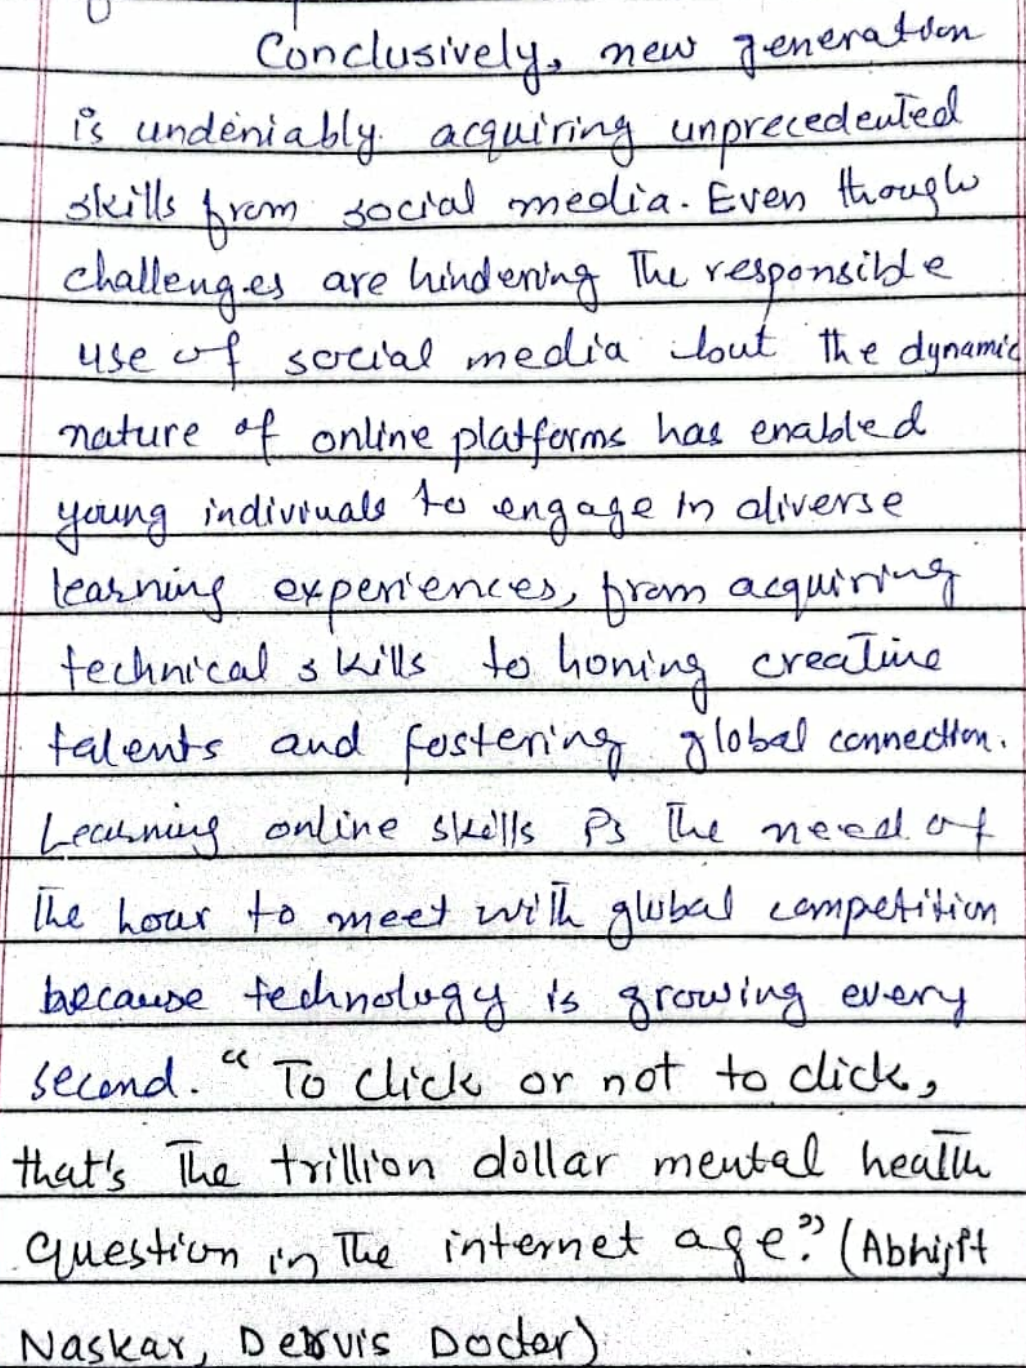 Conclusively, new generation
is undeniably acquiring unprecedented
skills from social media. Even though
challenges are hindering the responsible
use of social media but the dynamic
nature of online platforms has enabled
young indiviuals to engage in diverse
learning experiences, from acquiring
technical skills to honing creative
talents and fostering global connection.
Learning online skills is the need of
the hour to meet with global competition
because technology is growing every
second. "To click or not to click,
that's the trillion dollar mental health
question in the internet age?" (Abhijit
Naskar, Dervis Doctor)